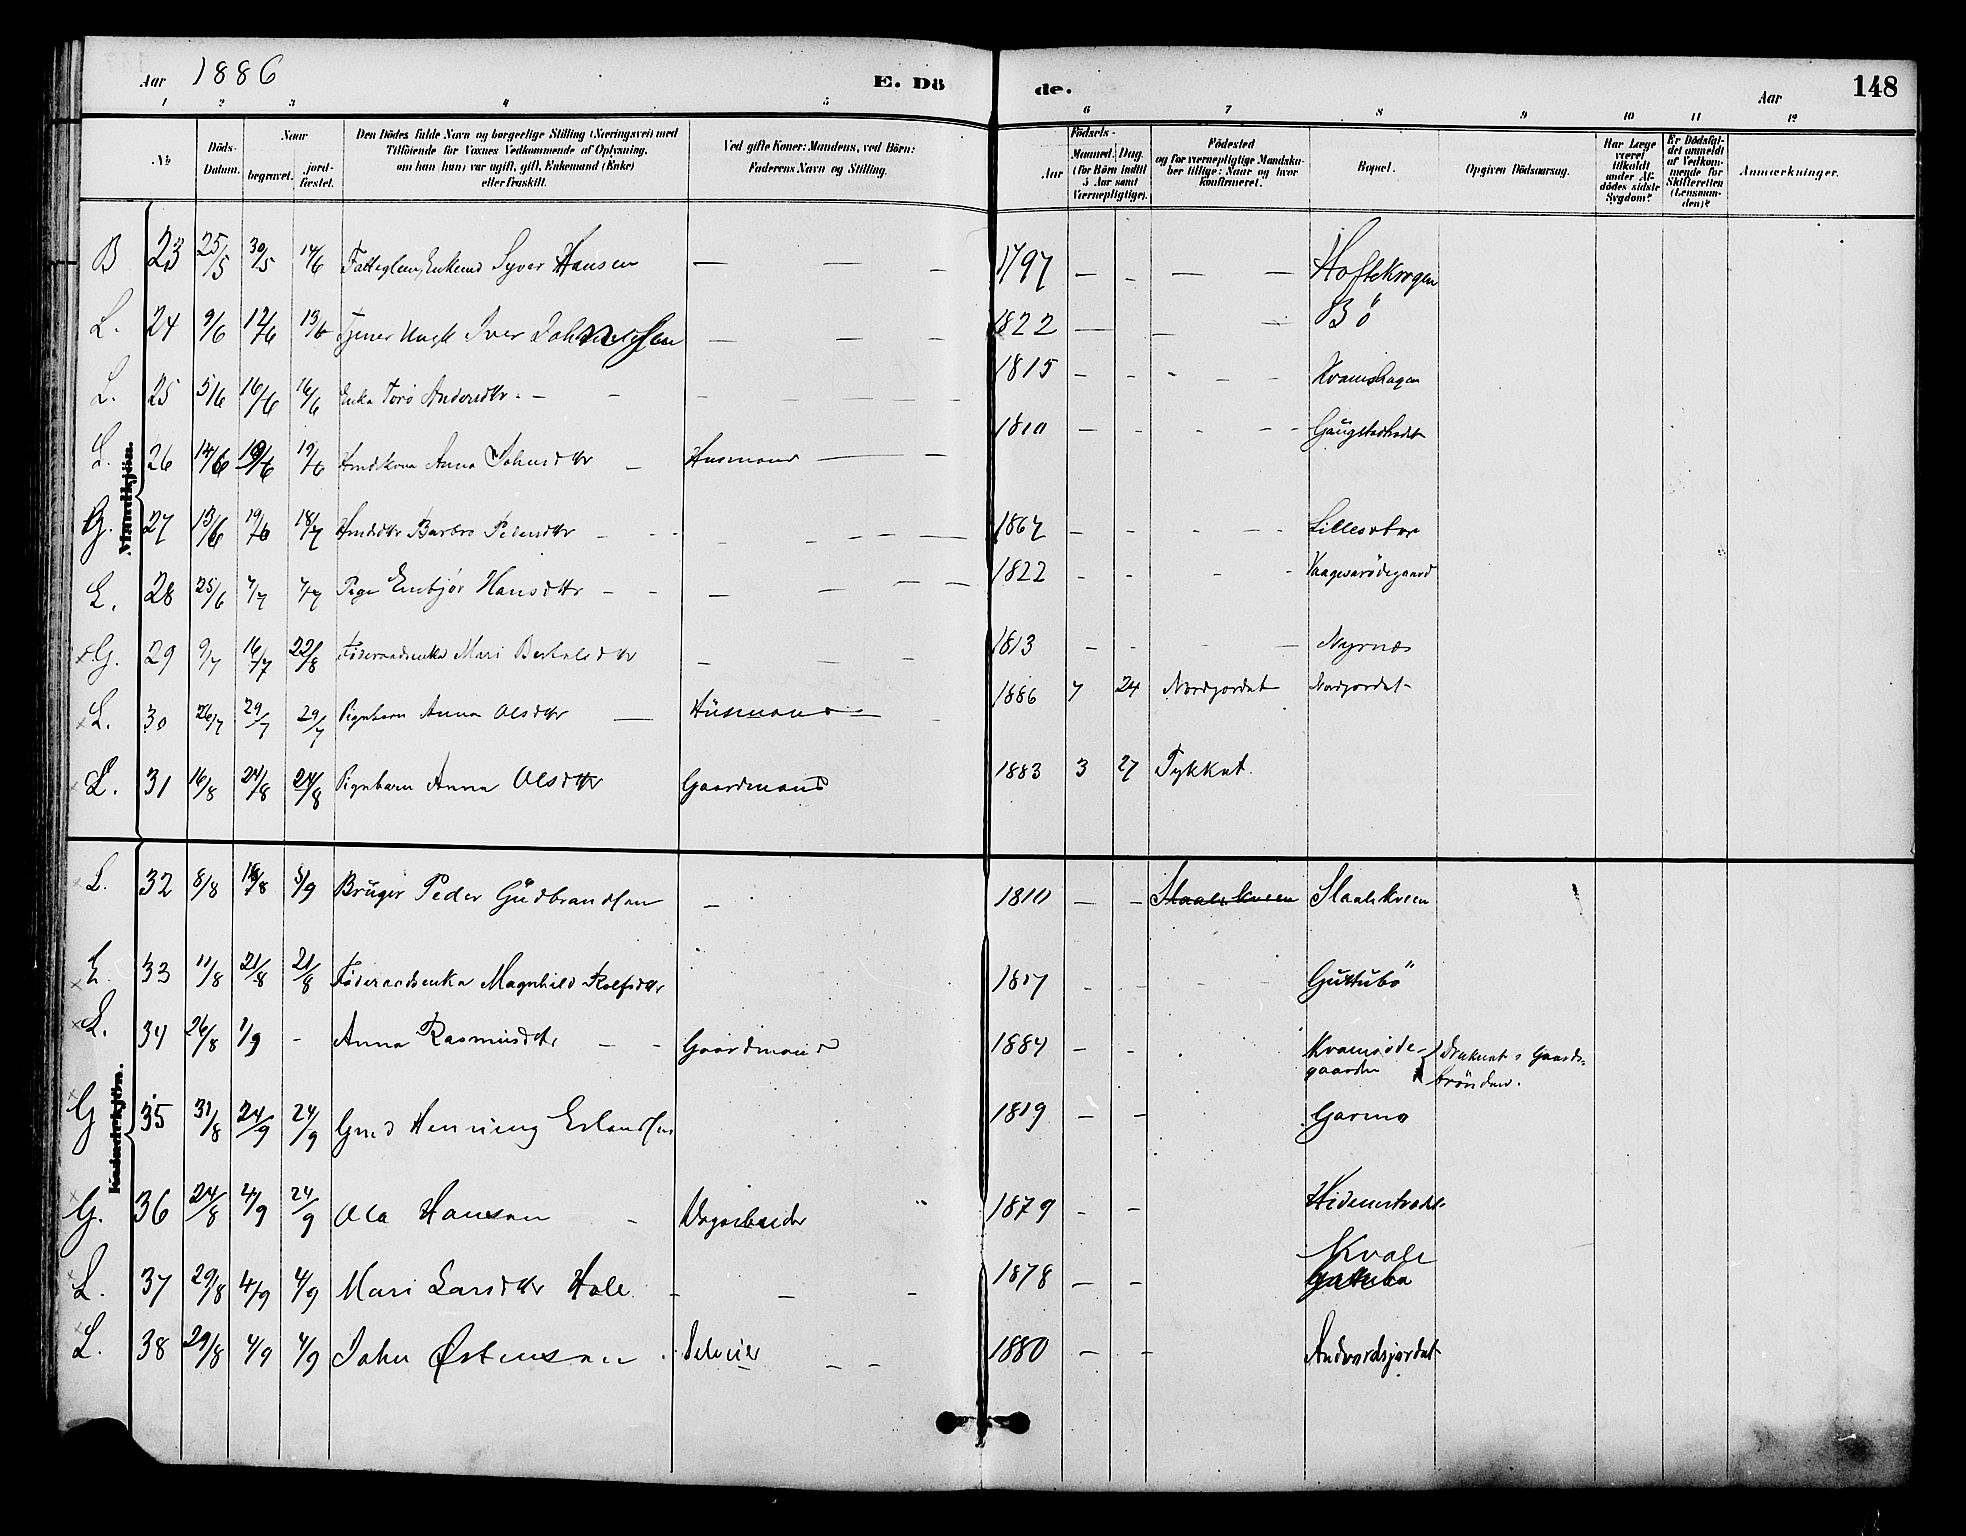 Aar 1886
E. Dö
de.
Aar
148
1 2 3 4 5 6 7 8 9 10 11 12
№
Döds-Datum.
Naar
begravet.
jord-fæstet.
Den Dödes fulde Navn og borgerlige Stilling (Næringsvei) med
Tilföiende for Voxnes Vedkommende af Oplysning,
om han (hun) var ugift, gift, Enkemand (Enke)
eller fraskilt.
Ved gifte Koner: Mandens, ved Börn:
Faderens Navn og Stilling.
Födsels-
Aar
Maaned. Dag.
(for Börn indtil
5 Aar samt
Værnepligtige).
Födested
og for værnepligtige Mandska-
ber tillige: Naar og hvor
konfirmeret.
Bopæl.
Opgiven Dödsaarsag.
Har Læge
været
tilkaldt
under Af-
dödes sidste
Sygdom?
Er Dödsfal-
det anmeldt
af Vedkom-
mende for
Skifteretten
(Lensman-
den)?
Anmærkninger.
Mandkjön.
B 23 25/5 30/5 14/6 Enkemd Syver Hansen — — - 1797 — - — — Hoftekrogen
L. 24 9/6 12/6 13/6 Iver Johannessen — — - 1822 — — — Bö
L. 25 5/6 16/6 16/6 Enke Torö Andersdtr. 1815 - - - - - Kvamshagen
L. 26 14/6 19/6 19/6 Anna Johnsdtr — Husmand 1810 - - - - -
G. 27 13/6 19/6 18/7 Barbro Pedersdtr 1867 - - - - - Lillesæter
L. 28 25/6 7/7 7/7 Pige Embjør Hansdtr 1822 - - - - Kaagesarødegaard
G. 29 9/7 16/7 22/8 Föderaadsenke Mari Bertelsdtr 1813 - - - - Nyrnæs
L. 30 26/7 29/7 29/7 Pigebarn Anna Olsdtr — Husmand — 1886 7 24 Nordjordet Nordjordet
L. 31 16/8 24/8 24/8 Pigebarn Anna Olsdtr Gaardmand 1883 3 27 Tykkut.
Kvindekjön.
L. 32 8/8 18/8 5/9 Bruger Peder Gudbrandsen — 1810 — — Staalekveen Slaalekveen
L. 33 11/8 21/8 21/8 Föderaadsenke Magnhild Rolfsdtr 1817 Guttubö
L. 34 26/8 1/9 - Anna Rasmusdtr - - Gaardmand 1884 - - Kvamsöde-
gaarden Druknet i Gaards-
brönden.
G 35 31/8 24/9 24/9 Gmd Henning Erlandsen 1819 - - Garmo
G. 36 24/8 4/9 24/9 Ola Hansen - 1879 - -
L. 37 29/8 4/9 4/9 Mari Larsdtr Hole - - - 1878 — — Kvale
L. 38 29/8 4/9 4/9 John Østensen 1880 — — Andvordsjordet